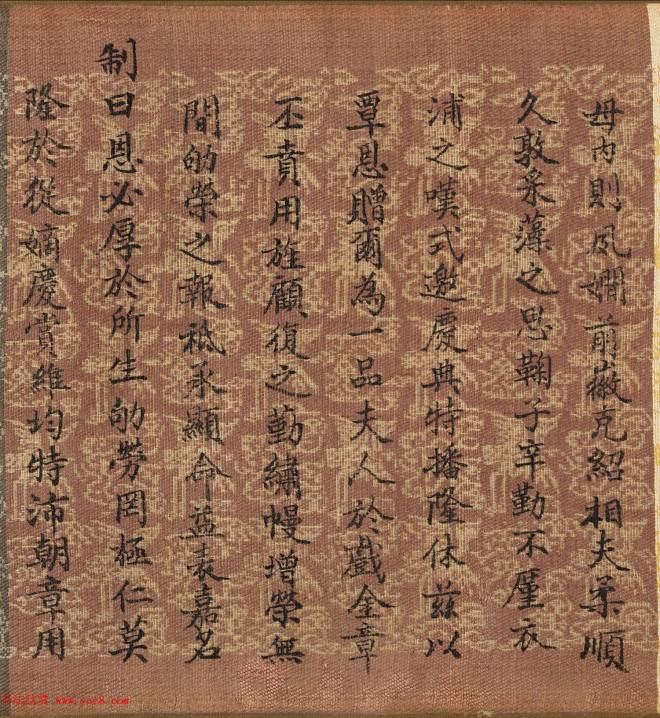 母內則夙嫻前徽克紹相夫柔順
久敦采藻之思鞠子辛勤不廑衣
浦之嘆式邀慶典特播隆休茲以
覃恩贈爾為一品夫人於戲金章
丕賁用旌顧復之勤繡幔增榮無
間劬榮之報祇承顯命益表嘉名
制曰恩必厚於所生劬勞罔極仁莫
隆於從嫡慶賞維均特沛朝章用
www.yac8.com